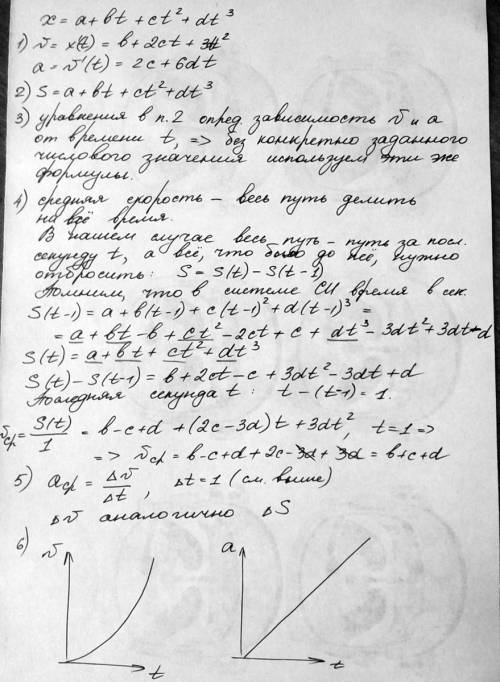 x = a + bt + ct² + dt³
1) v = x'(t) = b + 2ct + 3t²
a = v'(t) = 2c + 6dt
2) S = a + bt + ct² + dt³
3) уравнения в п. 2 опред. зависимость v и a
от времени t, => без конкретно заданного
числового значения используем эти же
формулы.
4) средняя скорость – весь путь делить
на всё время.
В нашем случае весь путь – путь за посл.
секунду t, а всё, что было до неё, нужно
отбросить: S = S(t) - S(t-1)
Помним, что в системе СИ время в сек.
S(t-1) = a + b(t-1) + c(t-1)² + d(t-1)³ =
= a + bt - b + ct² - 2ct + c + dt³ - 3dt² + 3dt - d
S(t) = a + bt + ct² + dt³
S(t) - S(t-1) = b + 2ct - c + 3dt² - 3dt + d
Последняя секунда t: t - (t-1) = 1.
vср = S(t)/1 = b - c + d + (2c - 3d)t + 3dt², t = 1 =>
=> vср = b - c + d + 2c - 3d + 3d = b + c + d
5) aср = Δv/Δt, Δt = 1 (см. выше)
Δv аналогично ΔS
6) v t a t